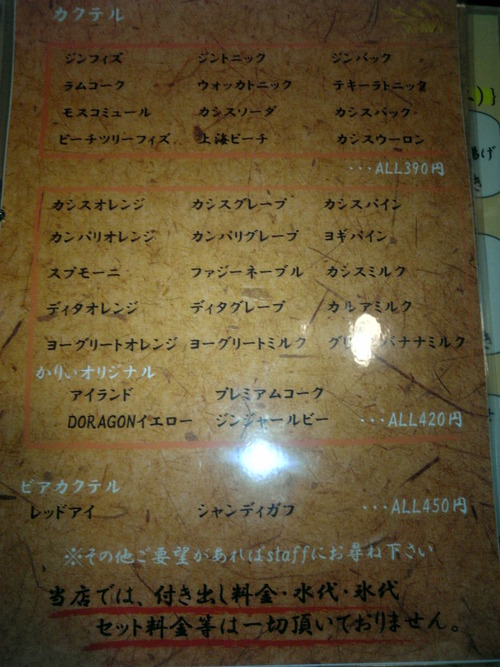 カクテル
ジンフィズ ジントニック ジンバック
ラムコーク ウォッカトニック テキーラトニック
モスコミュール カシスソーダ カシスバック
ピーチツリーフィズ 上海ピーチ カシスウーロン
･･･ALL390円
カシスオレンジ カシスグレープ カシスパイン
カンパリオレンジ カンパリグレープ ヨギパイン
スプモーニ ファジーネーブル カシスミルク
ディタオレンジ ディタグレープ カルアミルク
ヨーグリートオレンジ ヨーグリートミルク バナナミルク
かりぃオリジナル
アイランド プレミアムコーク
DORAGONイエロー ジンジャールビー ･･･ALL420円
ビアカクテル
レッドアイ シャンディガフ ･･･ALL450円
※その他ご要望があればstaffにお尋ね下さい
当店では、付き出し料金・水代・氷代
セット料金等は一切頂いておりません。